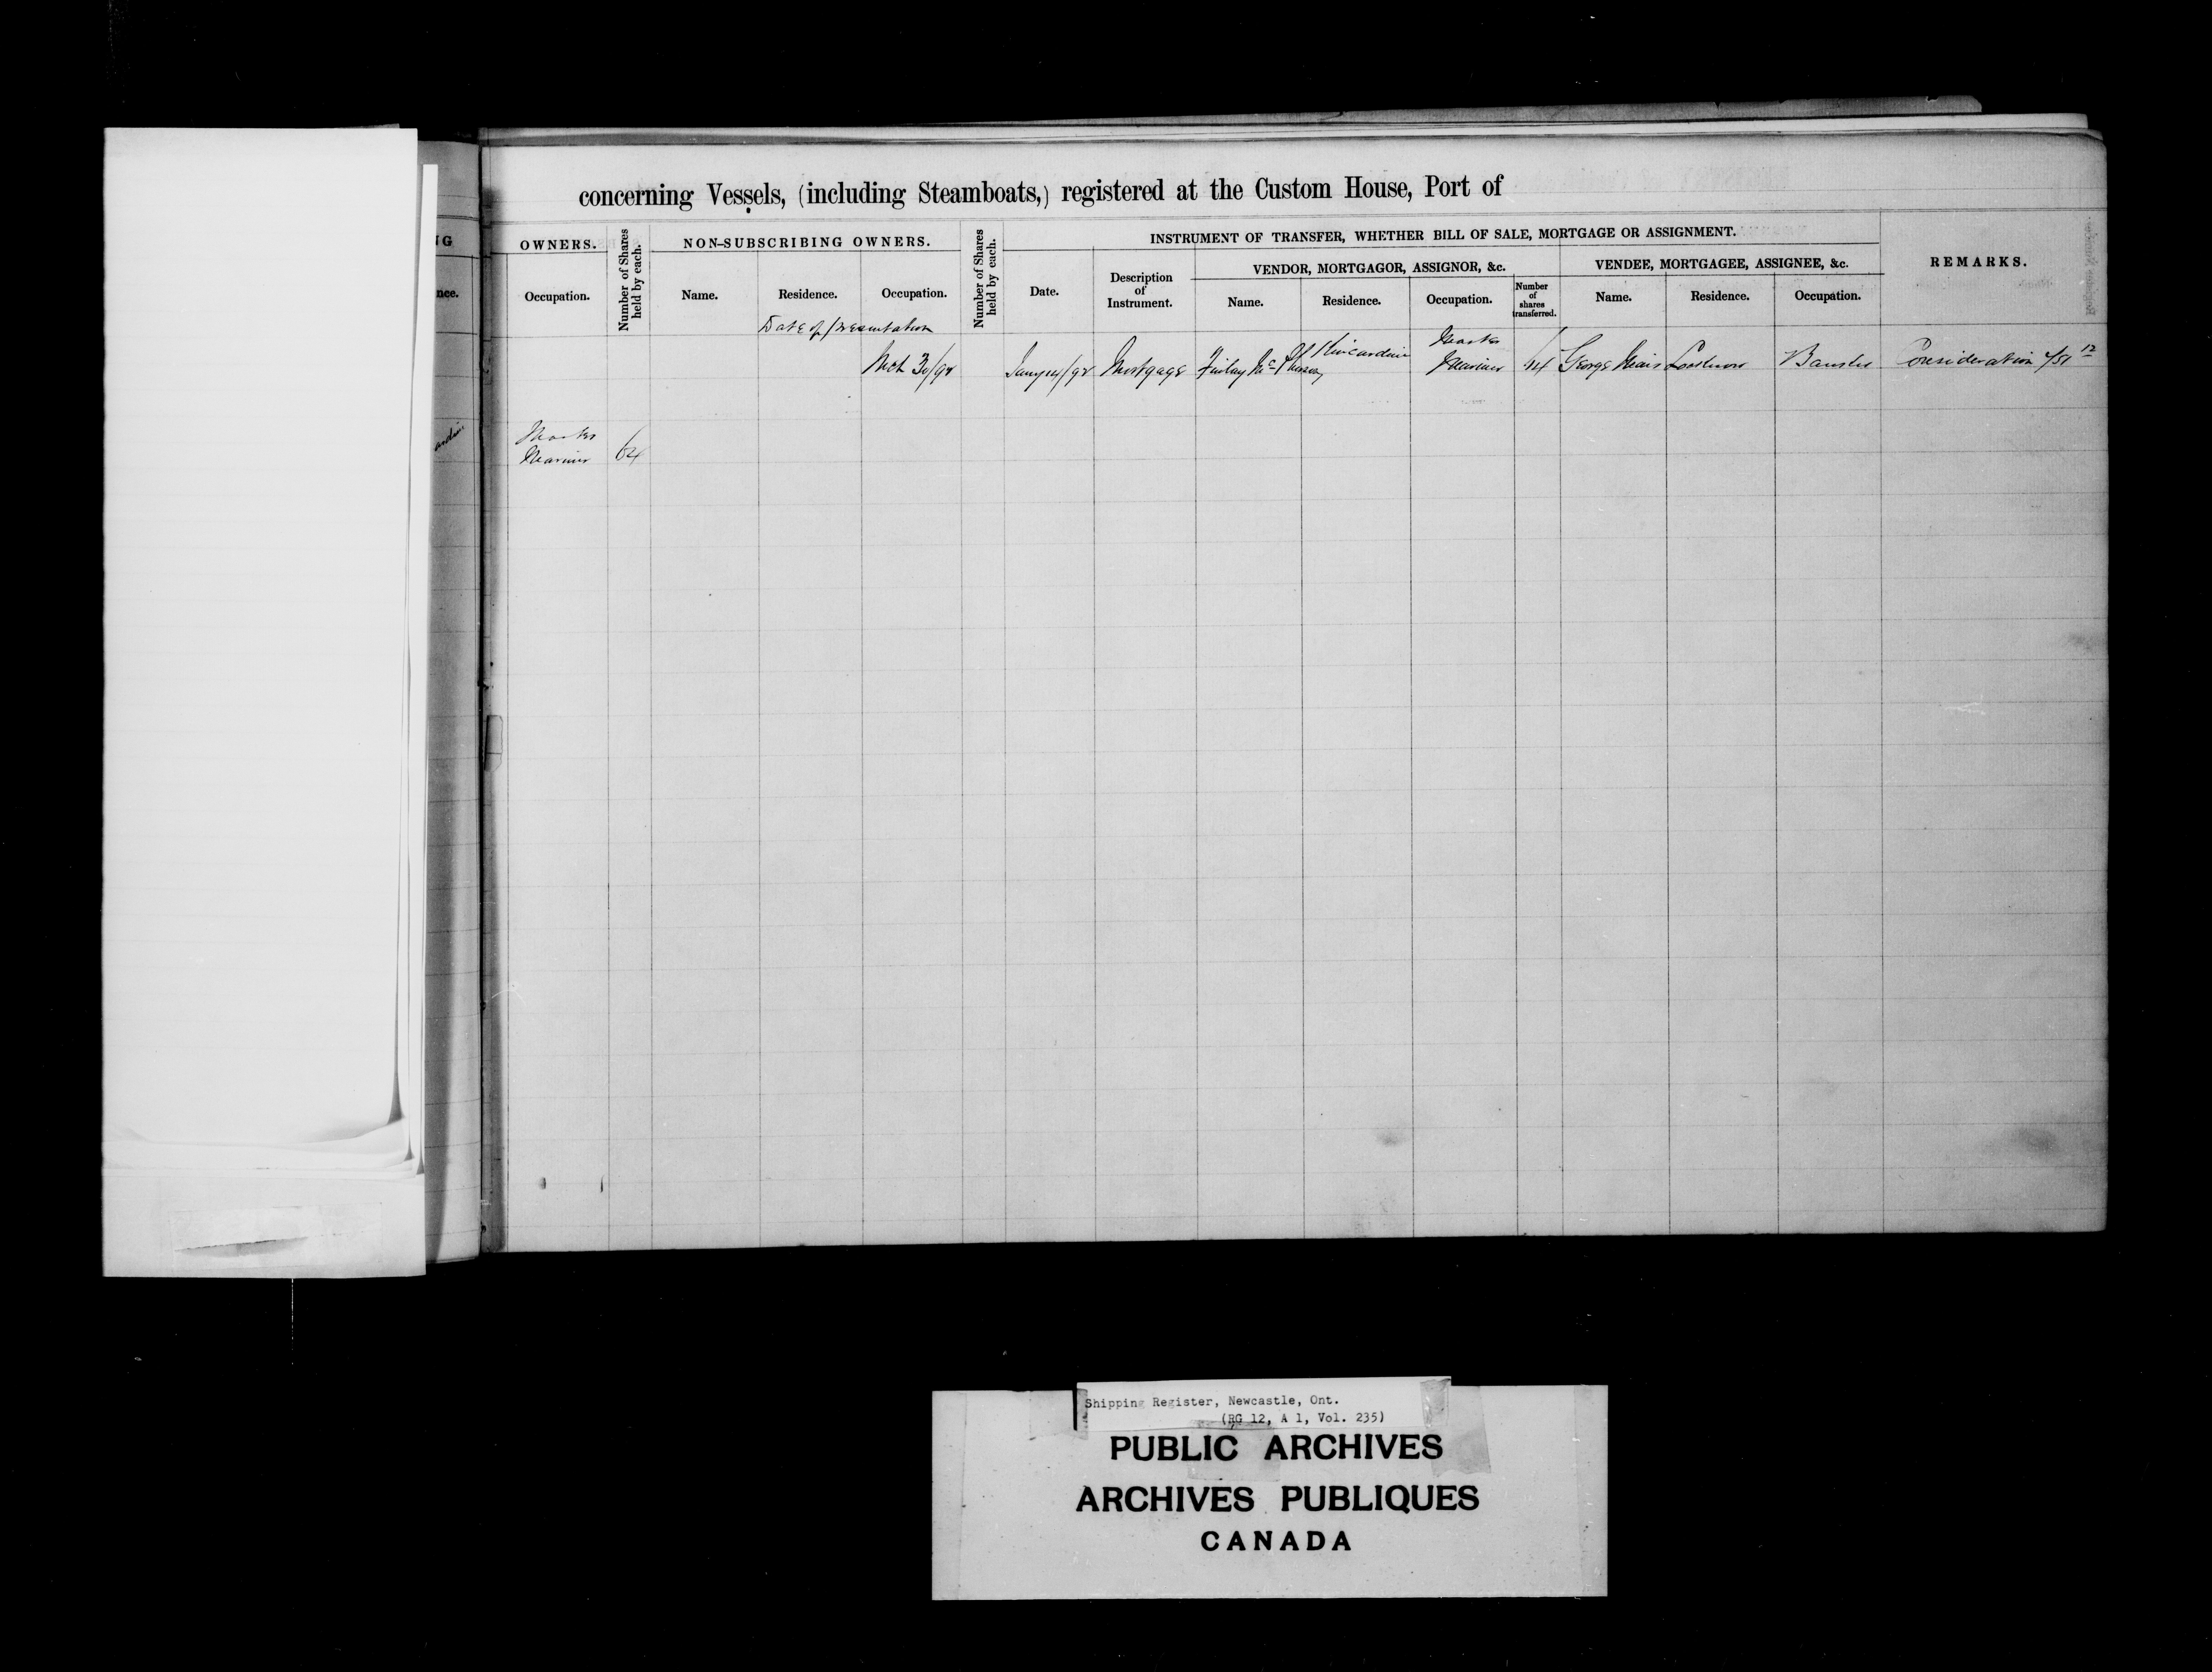 concerning Vessels, (including Steamboats,) registered at the Custom House, Port of
NG
OWNERS.
Number of Shares held by each.
NON-SUBSCRIBING OWNERS.
Number of Shares held by each.
INSTRUMENT OF TRANSFER, WHETHER BILL OF SALE, MORTGAGE OR ASSIGNMENT.
VENDOR, MORTGAGOR, ASSIGNOR, &c.
VENDEE, MORTGAGEE, ASSIGNEE, &c.
REMARKS.
nce.
Occupation.
Name.
Residence.
Occupation.
Date.
Description of Instrument.
Name.
Residence.
Occupation.
Number of shares transferred.
Name.
Residence.
Occupation.
Date of Presentation
Mch 30/92 Jany 14/92 Mortgage Finlay McPherson Kincardine Master Mariner 64 George Lucknow Banker Consideration
ardin
Master
Mariner 64
Shipping Register, Newcastle, Ont.
(RG 12, A 1, Vol. 235)
PUBLIC ARCHIVES
ARCHIVES PUBLIQUES
CANADA